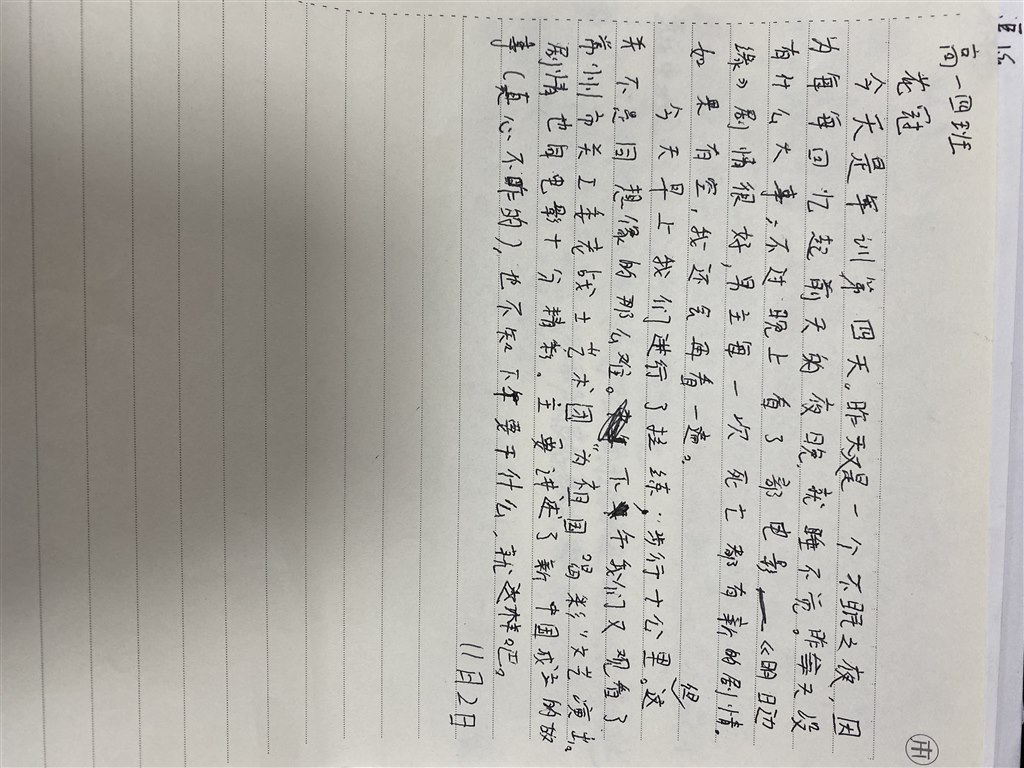 高一四班
龙冠
今天是军训第四天。昨天又是一个不眠之夜，因
为每每回忆起前天的夜晚，就睡不完。昨军天没
有什么大事，不过晚上看了部电影——《明日边
缘》剧情很好，男主每一次死亡都有新的剧情。
如果有空，我还会再看一遍。
今天早上我们进行了拉练，步行十公里。这
并不是回想像的那么难。下午我们又观看了
常州市关工委老战士艺术团“为祖国喝彩”文艺演出。
剧情也与电影十分精彩。主要讲述了新中国成立的故
事（真心不咋的），也不知下午要干什么，就这样吧。
11月2日